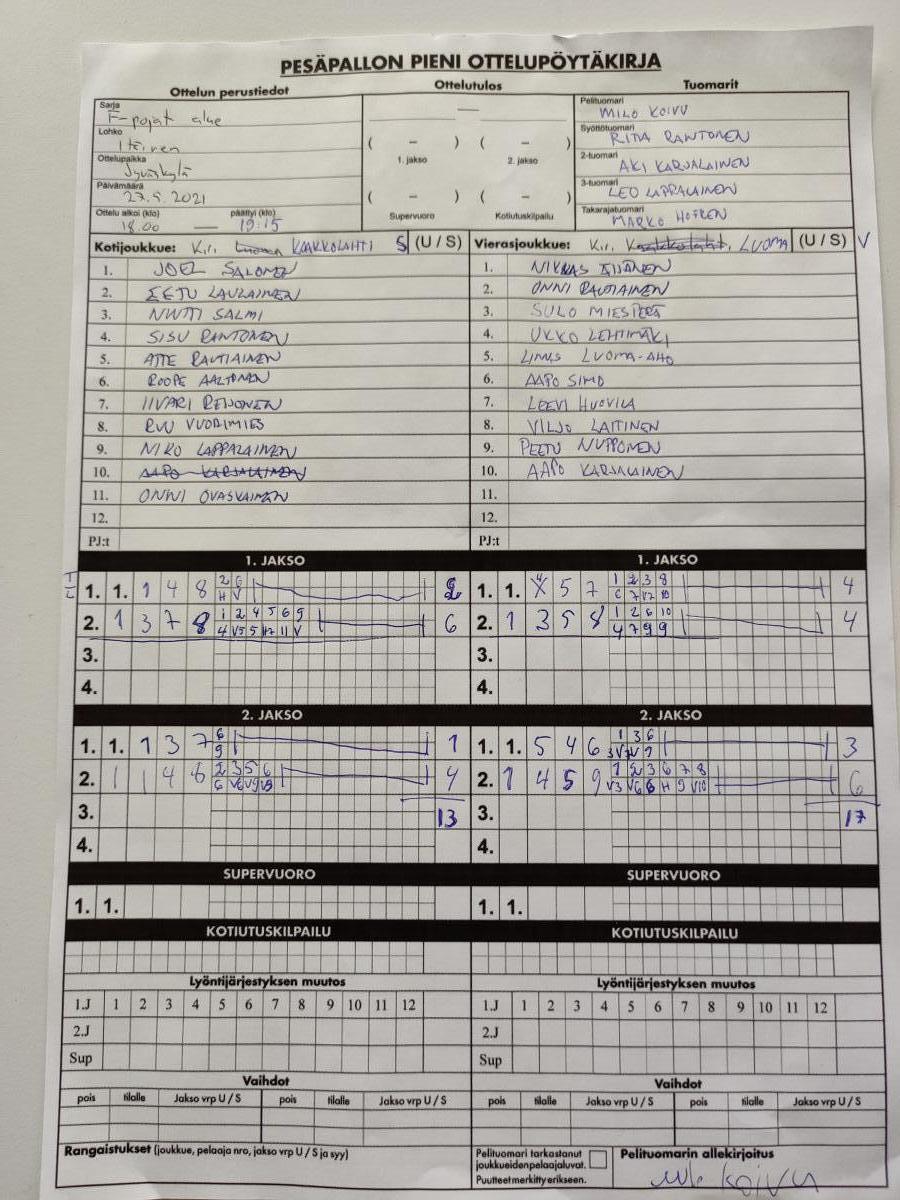 PESÄPALLON PIENI OTTELUPÖYTÄKIRJA
Ottelun perustiedot Ottelutulos Tuomarit
Sarja
F-pojat alue
Lohko
Itäinen
Ottelupaikka
Jyväskylä
Päivämäärä
27.5.2021
Ottelu alkoi (klo) päättyi (klo)
18.00 — 19:15
—
( – ) ( – )
1. jakso 2. jakso
( – ) ( – )
Supervuoro Kotiutuskilpailu
Pelituomari
MILO KOIVU
Syöttötuomari
RITA RANTONEN
2-tuomari
AKI KARJALAINEN
3-tuomari
LEO LAPPALAINEN
Takarajatuomari
MARKO HOFREN
Kotijoukkue: K.r. KAAKKOLAHTI S (U / S)
1. JOEL SALONEN
2. EETU LAULAINEN
3. NUUTTI SALMI
4. SISU RANTONEN
5. ATTE RAUTIAINEN
6. ROOPE AALTONEN
7. IIVARI REIJONEN
8. RUU VUORIMIES
9. NIKO LAPPALAINEN
10. AAPO KARJALAINEN
11. ONNI OVASKAINEN
12.
PJ:t
Vierasjoukkue: K.r. LUOMA (U / S) V
1. NIKLAS
2. ONNI RAUTIAINEN
3. SULO
4. UKKO LEHTIMÄKI
5. LINUS LUOMA-AHO
6. AAPO SIMO
7. LEEVI HUOVILA
8. VILJO LAITINEN
9. PEETU NUPPONEN
10. AAPO KARJALAINEN
11.
12.
PJ:t
1. JAKSO 1. JAKSO
1. 1. 1 4 8 2 6 2
H V
2. 1 3 7 8 1 2 4 5 6 9 6
4 V5 5 V7 11 V
3.
4.
1. 1. 4 5 7 1 2 3 8 4
C 7 V7 10
2. 1 3 5 8 1 2 6 10 4
4 7 9 9
3.
4.
2. JAKSO 2. JAKSO
1. 1. 1 3 7 6 1
9
2. 1 1 4 8 2 3 5 6 4
6 V6 V9 V8
3. 13
4.
1. 1. 5 4 6 1 3 6 3
3 V7 V 7
2. 1 4 5 9 1 2 3 6 7 8 6
V3 V6 6 H 9 V10
3. 17
4.
SUPERVUORO SUPERVUORO
1. 1. 1. 1.
KOTIUTUSKILPAILU KOTIUTUSKILPAILU
Lyöntijärjestyksen muutos Lyöntijärjestyksen muutos
1.J 1 2 3 4 5 6 7 8 9 10 11 12 1.J 1 2 3 4 5 6 7 8 9 10 11 12
2.J 2.J
Sup Sup
Vaihdot Vaihdot
pois tilalle Jakso vrp U / S pois tilalle Jakso vrp U / S pois tilalle Jakso vrp U / S pois tilalle Jakso vrp U / S
Rangaistukset (joukkue, pelaaja nro, jakso vrp U / S ja syy)
Pelituomari tarkastanut
joukkueiden pelaajaluvat.
Puutteet merkitty erikseen.
Pelituomarin allekirjoitus
Milo Koivu